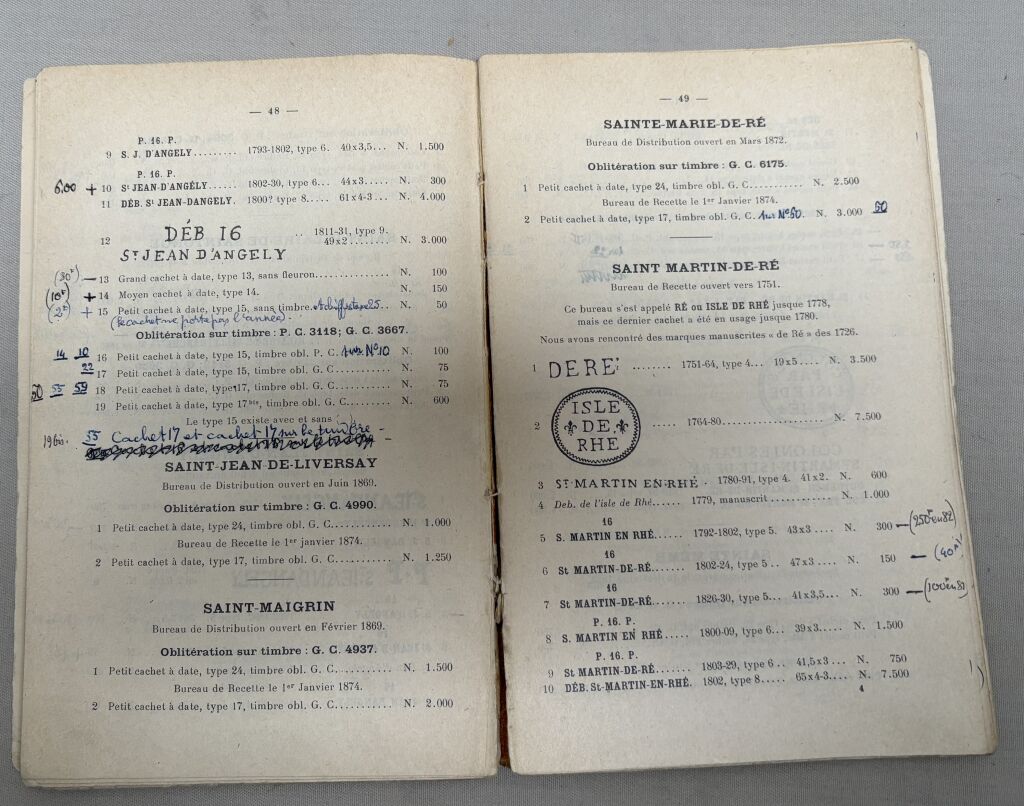 — 48 —
P. 16. P.
9 S. J. D'ANGELY......... 1793-1802, type 6. 40x3,5... N. 1.500
P. 16. P.
6.00 + 10 St JEAN-D'ANGÉLY...... 1802-30, type 6... 44x3..... N. 300
11 DÉB. St JEAN-DANGELY. 1800? type 8..... 61x4-3... N. 4.000
12 DÉB 16 .. 1811-31, type 9. 49x2........ N. 3.000
ST JEAN D'ANGELY
(30F) — 13 Grand cachet à date, type 13, sans fleuron............... N. 100
(10F) + 14 Moyen cachet à date, type 14. N. 150
(2F) + 15 Petit cachet à date, type 15, sans timbre. N. 50
(le cachet ne porte pas l'année).
Oblitération sur timbre : P. C. 3118; G. C. 3667.
14 10 16 Petit cachet à date, type 15, timbre obl. P. C. sur N° 10 N. 100
22 17 Petit cachet à date, type 15, timbre obl. G. C........... N. 75
60 55 59 18 Petit cachet à date, type 17, timbre obl. G. C........... N. 75
19 Petit cachet à date, type 17bis, timbre obl. G. C......... N. 600
Le type 15 existe avec et sans
19bis. 55 Cachet 17 et cachet 17 sur le timbre -
SAINT-JEAN-DE-LIVERSAY
Bureau de Distribution ouvert en Juin 1869.
Oblitération sur timbre : G. C. 4990.
1 Petit cachet à date, type 24, timbre obl. G. C........... N. 1.000
Bureau de Recette le 1er janvier 1874.
2 Petit cachet à date, type 17, timbre obl. G. C........... N. 1.250
SAINT-MAIGRIN
Bureau de Distribution ouvert en Février 1869.
Oblitération sur timbre : G. C. 4937.
1 Petit cachet à date, type 24, timbre obl. G. C........... N. 1.500
Bureau de Recette le 1er Janvier 1874.
2 Petit cachet à date, type 17, timbre obl. G. C........... N. 2.000
— 49 —
SAINTE-MARIE-DE-RÉ
Bureau de Distribution ouvert en Mars 1872.
Oblitération sur timbre : G. C. 6175.
1 Petit cachet à date, type 24, timbre obl. G. C........... N. 2.500
Bureau de Recette le 1er Janvier 1874.
2 Petit cachet à date, type 17, timbre obl. G. C. sur N° 60. N. 3.000 60
SAINT MARTIN-DE-RÉ
Bureau de Recette ouvert vers 1751.
Ce bureau s'est appelé RÉ ou ISLE DE RHÉ jusque 1778,
mais ce dernier cachet a été en usage jusque 1780.
Nous avons rencontré des marques manuscrites « de Ré » des 1726.
1 DERE' ......... 1751-64, type 4... 19x5.... N. 3.500
2 ISLE DE RHE 1764-80...................... N. 7.500
3 ST MARTIN EN RHÉ . 1780-91, type 4. 41x2. N. 600
4 Deb. de l'isle de Rhé..... 1779, manuscrit ............ N. 1.000
16
5 S. MARTIN EN RHÉ..... 1792-1802, type 5. 43x3 ... N. 300 — (250F en 82)
16
6 St MARTIN-DE-RÉ....... 1802-24, type 5 .. 47x3 .... N. 150 — (40
16
7 St MARTIN-DE-RÉ...... 1826-30, type 5... 41x3,5... N. 300 — (100F en 82)
P. 16. P.
8 S. MARTIN EN RHÉ ..... 1800-09, type 6... 39x3..... N. 1.500
P. 16. P.
9 St MARTIN-DE-RÉ...... 1803-29, type 6 .. 41,5x3 ... N. 750
10 DÉB. St-MARTIN-EN-RHÉ. 1802, type 8..... 65x4-3... N. 7.500
4